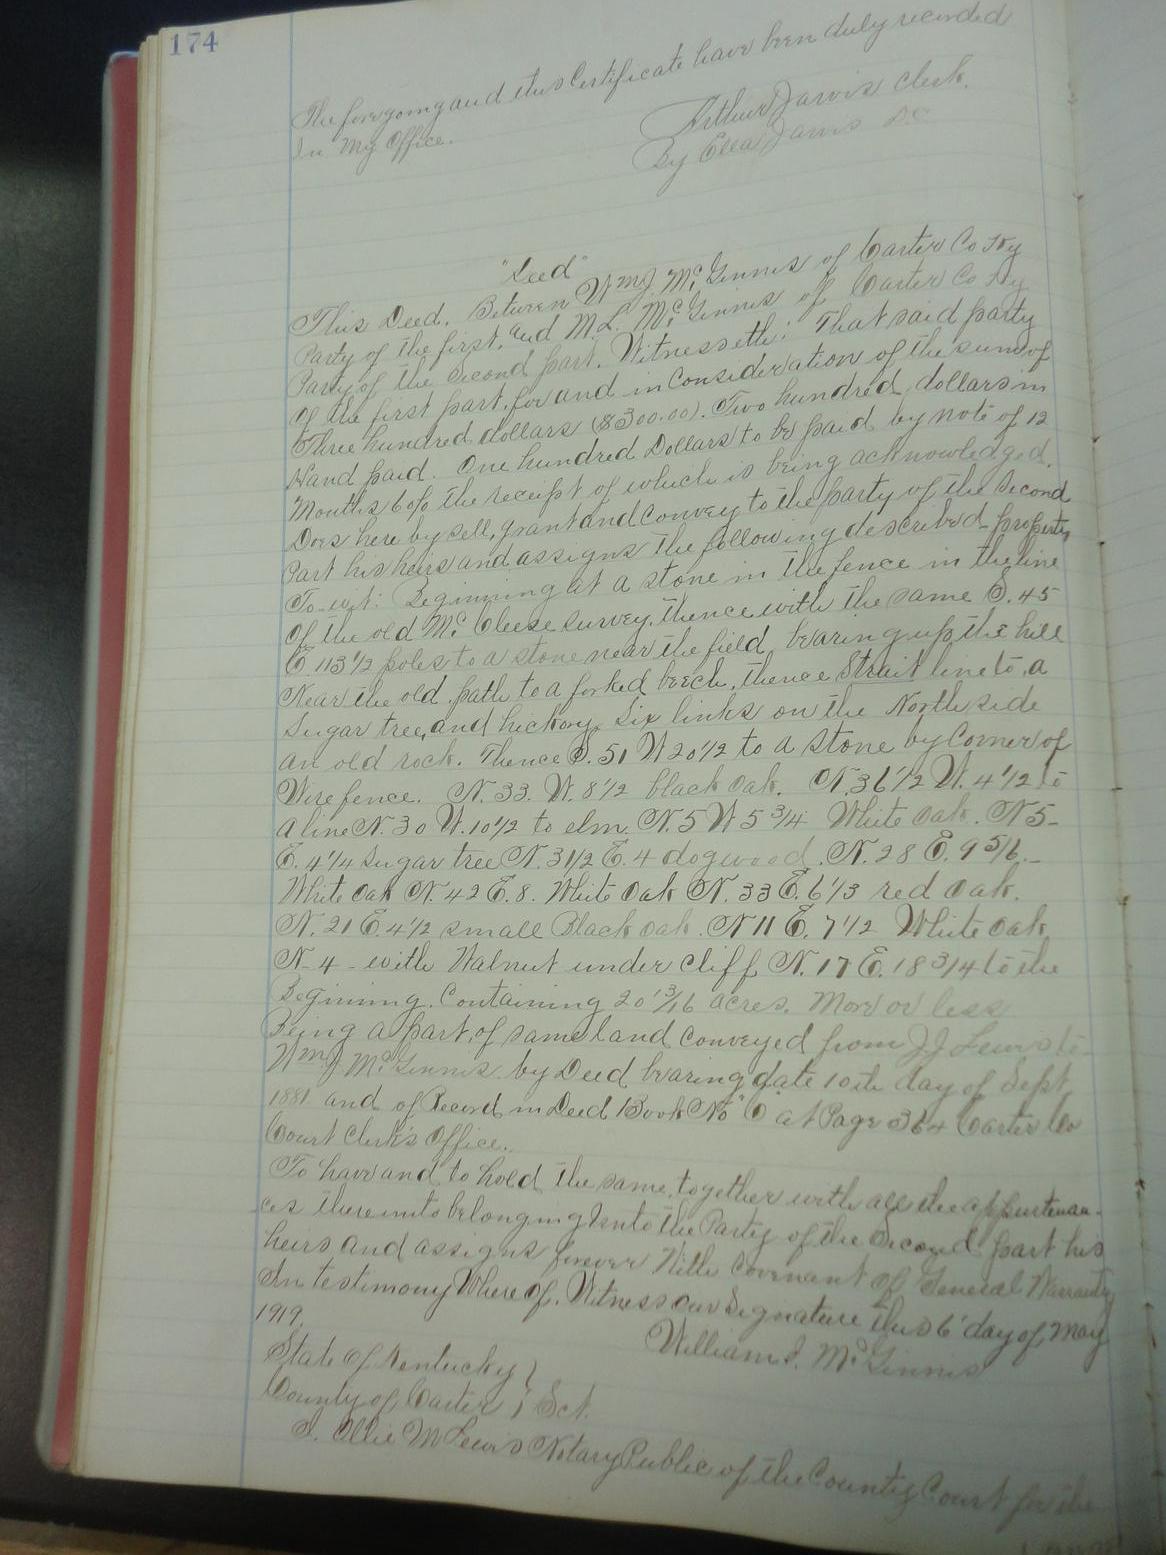 174
The foregoing and this Certificate have been duly recorded
In My Office.
Arthur Jarvis Clerk.
By Ella Jarvis DC
"Deed"
This Deed. Between Wm J. Mc Ginnis of Carter Co Ky
Party of the first, and M. L. Mc Ginnis of Carter Co Ky
Party of the Second part. Witnesseth: That said party
Of the first part, for and in Consideration of the sum of
Three hundred dollars ($300.00). Two hundred dollars in
Hand paid. One hundred Dollars to be paid by note of 12
Months 6% the receipt of which is being acknowledged.
Does here by sell, grant and convey to the party of the Second
Part his heirs and assigns the following described property,
To-wit: Beginning at a stone in the fence in the line
Of the old Mc Cleese survey, thence with the same S. 45
E 113 1/2 poles to a stone near the field, bearing up the hill
Near the old path to a forked beech, thence Strait line to a
Sugar tree, and hickory, Six links on the North side
an old rock. Thence S. 51 W 20 1/2 to a Stone by Corner of
Wire fence. N. 33. W. 8 1/2 black oak. N. 36 1/2 W. 4 1/2 to
A line N. 30 W. 10 1/2 to elm. N. 5 W 5 3/4 White oak. N 5-
E. 4 1/4 Sugar tree N. 31/2 E. 4 dogwood. N. 28 E. 9 5/6.-
White oak N. 42 E. 8. White Oak N. 33 E. 6 1/3 red Oak.
N. 21 E. 4 1/2 small Black oak. N 11 E. 7 1/2 White oak,
N-4- with Walnut under cliff, N. 17 E. 18 3/4 to the
Begining. Containing 20 13/16 acres. More or less
Being a part, of same land conveyed from J J Lewis to-
Wm J Mc Ginnis by Deed bearing date 10th day of Sept,
1881 and of Record in Deed Book No "O at Page 364 Carter Co
Court Clerk's Office.
To have and to hold the same, together with all the appurtenan-
ces thereunto belonging Unto the Party of the Second part his
heirs and assigns forever With Covenant of General Warranty
In testimony Where of, Witness our Signature this 6' day of May
1919.
William J. Mc Ginnis
State of Kentucky }
County of Carter } Sct.
I. Ollie M Lewis Notary Public of the County Court for the